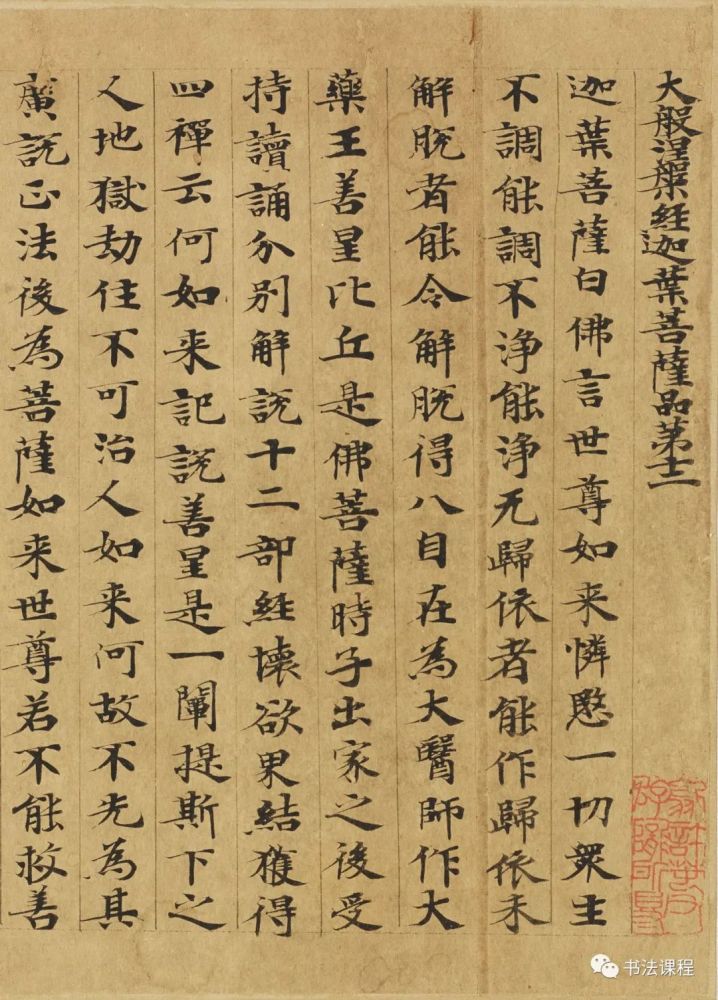 大般涅槃經迦葉菩薩品第十二
迦葉菩薩白佛言世尊如来憐愍一切衆生
不調能調不淨能淨无歸依者能作歸依未
解脫者能令解脫得八自在為大醫師作大
藥王善星比丘是佛菩薩時子出家之後受
持讀誦分別解說十二部經壞欲界結獲得
四禪云何如来記說善星是一闡提斯下之
人地獄劫住不可治人如来何故不先為其
廣說正法後為菩薩如来世尊若不能救善
书法课程